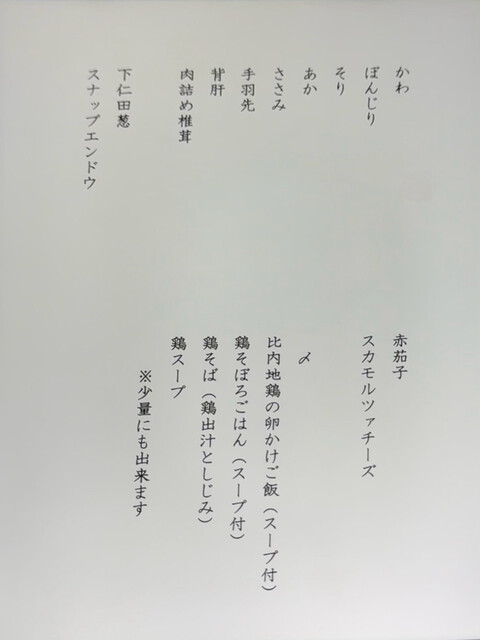 かわ
ぼんじり
そり
あか
ささみ
手羽先
背肝
肉詰め椎茸
下仁田葱
スナップエンドウ
赤茄子
スカモルツァチーズ
〆
比内地鶏の卵かけご飯（スープ付）
鶏そぼろごはん（スープ付）
鶏そば（鶏出汁としじみ）
鶏スープ
※少量にも出来ます